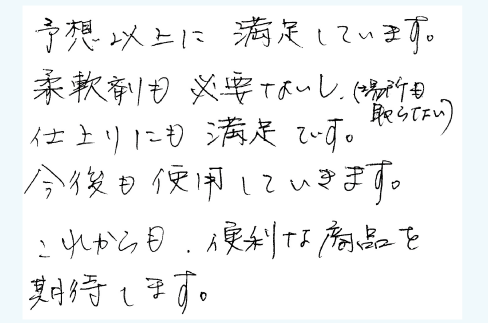 予想以上に満足しています。
柔軟剤も必要ないし、(場所も取らない)
仕上りにも満足です。
今後も使用していきます。
これからも、便利な商品を
期待します。